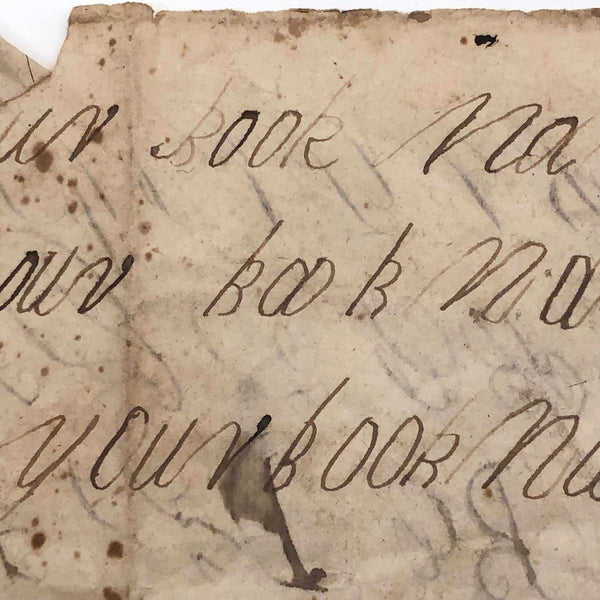 our book Na
our book Na
your book Na